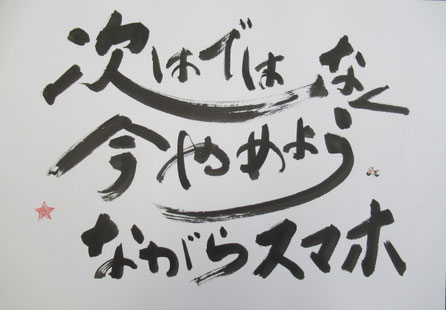 次はではなく
今やめよう
ながらスマホ